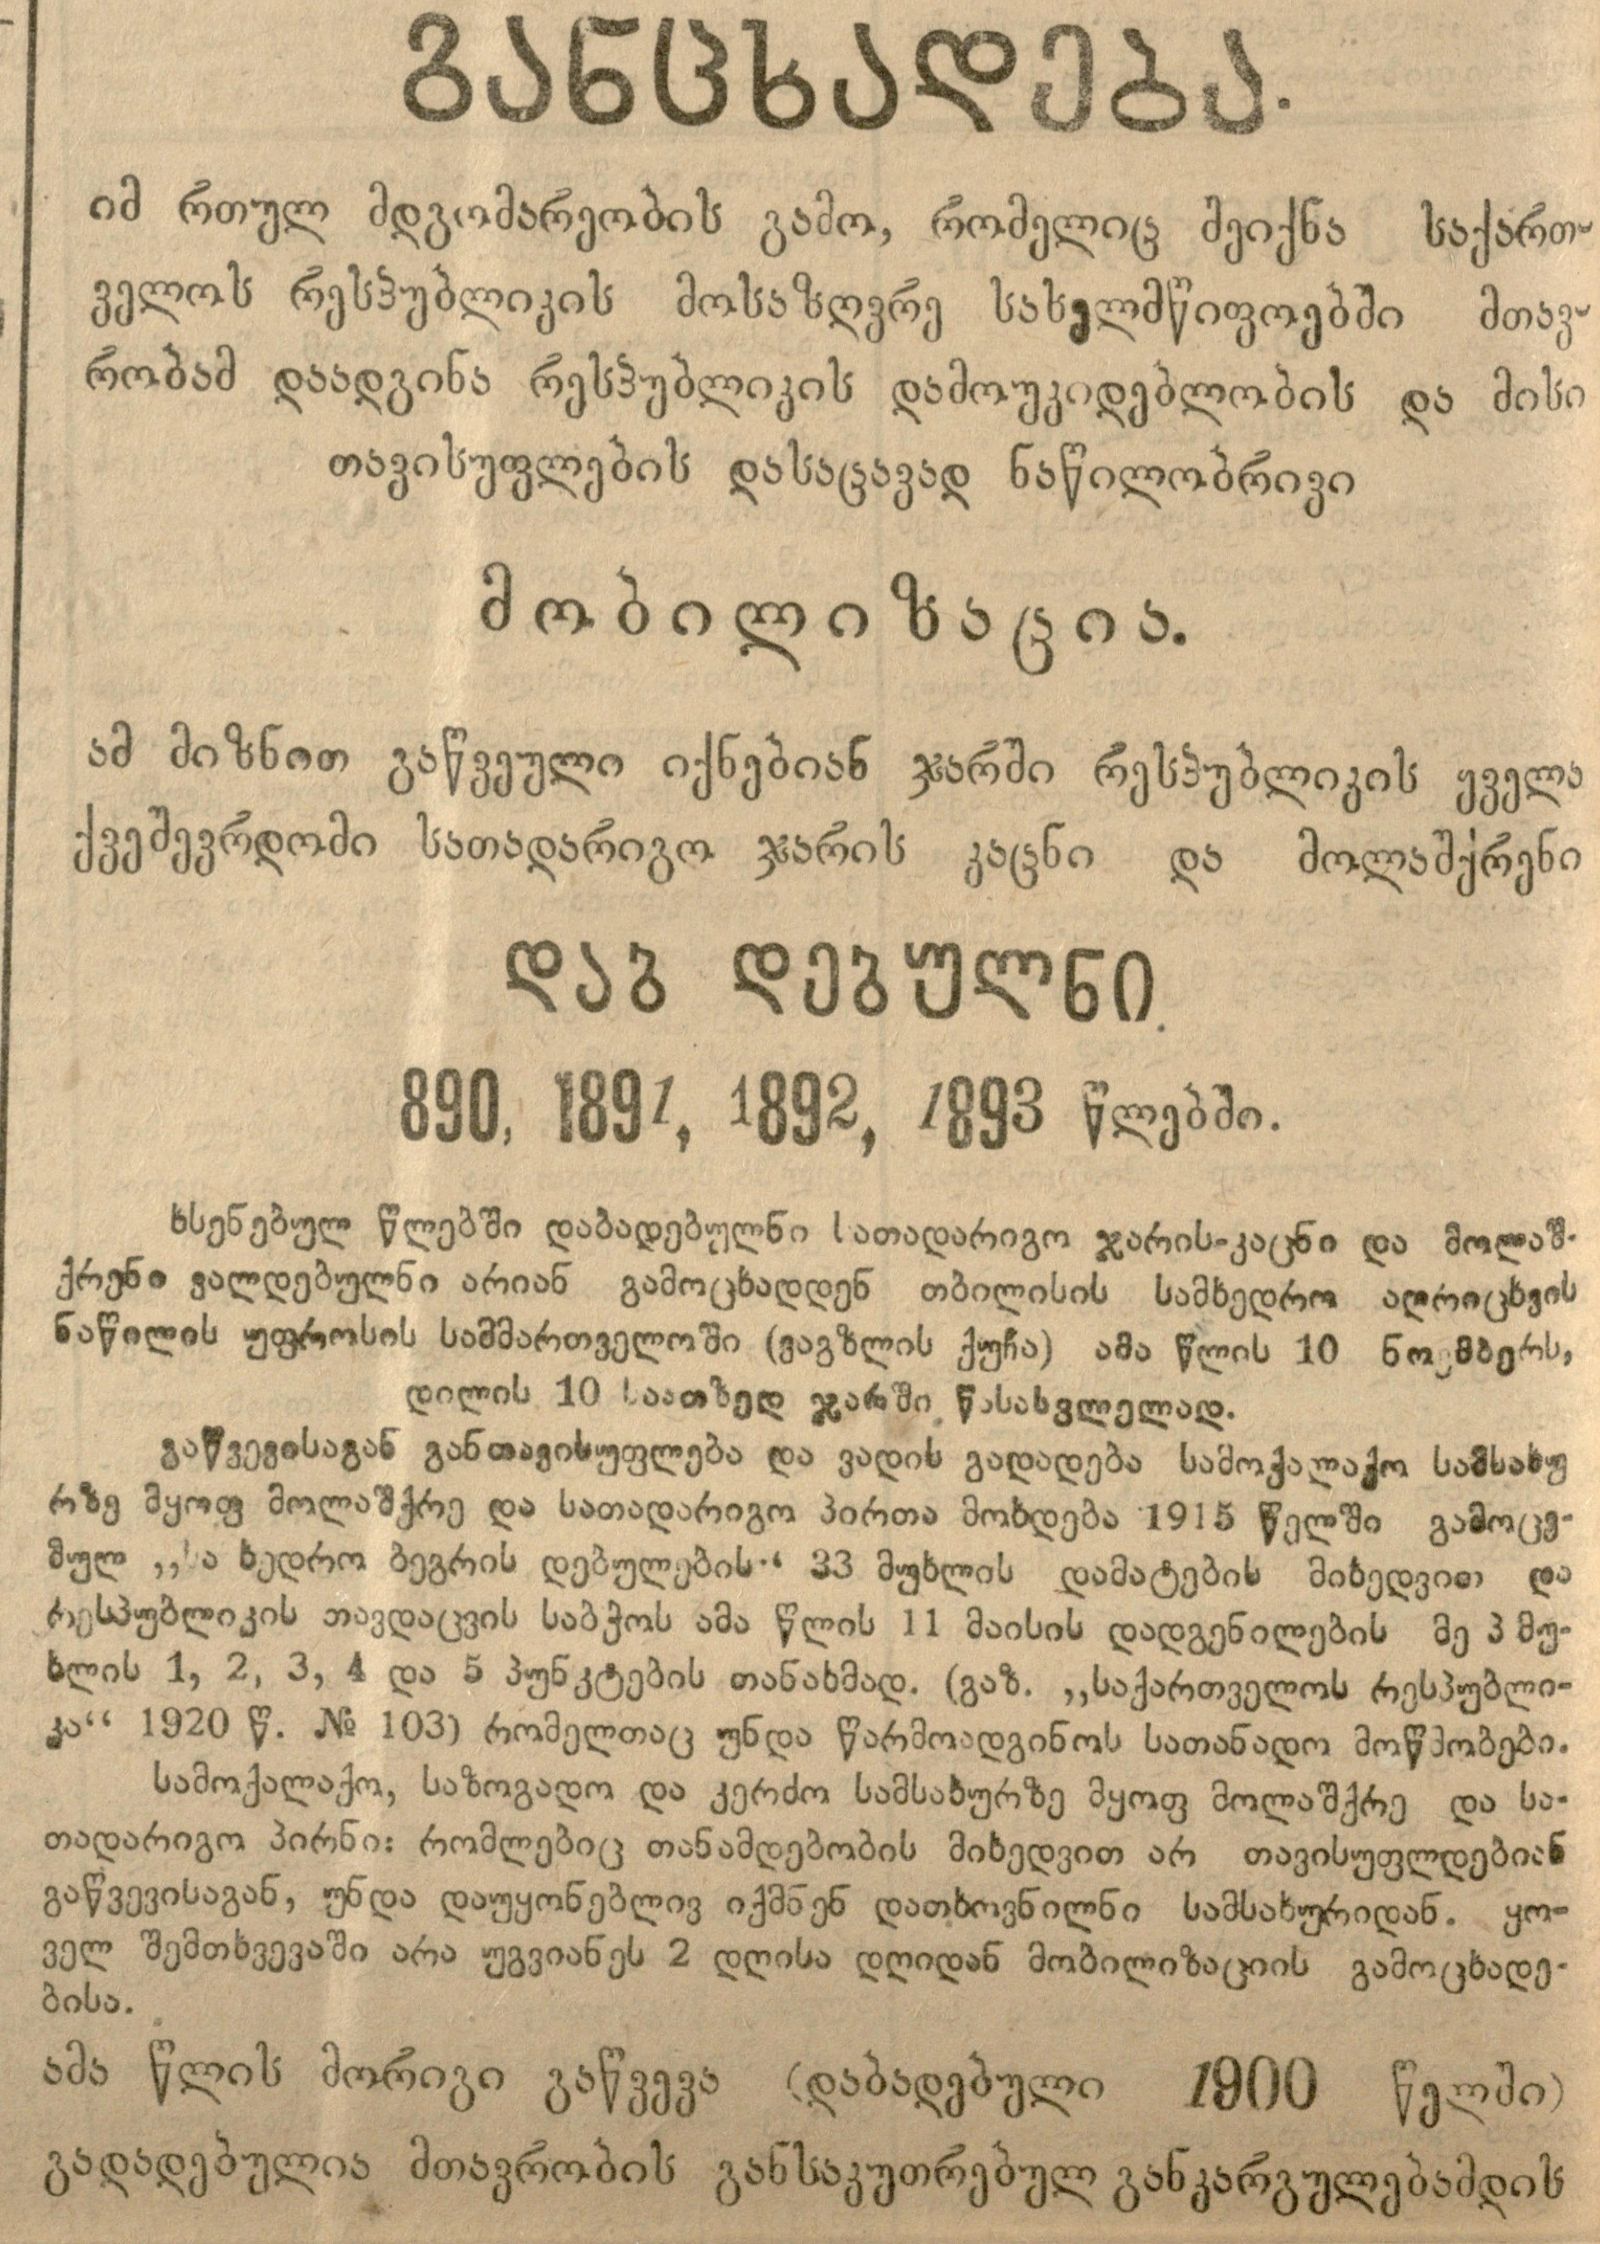 განცხადება.
იმ რთულ მდგომარეობის გამო, რომელიც შეიქნა საქართ-
ველოს რესპუბლიკის მოსაზღვრე სახელმწიფოებში მთავ-
რობამ დაადგინა რესპუბლიკის დამოუკიდებლობის და მისი
თავისუფლების დასაცავად ნაწილობრივი
მობილიზაცია.
ამ მიზნით გაწვეული იქნებიან ჯარში რესპუბლიკის ყველა
ქვეშევრდომი სათადარიგო ჯარის კაცნი და მოლაშქრენი
დაბ დებულნი
890, 1891, 1892, 1893 წლებში.
ხსენებულ წლებში დაბადებულნი სათადარიგო ჯარის-კაცნი და მოლაშ-
ქრენი ვალდებულნი არიან გამოცხადდენ თბილისის სამხედრო აღრიცხვის
ნაწილის უფროსის სამმართველოში (ვაგზლის ქუჩა) ამა წლის 10 ნოემბერს,
დილის 10 საათზედ ჯარში წასასვლელად.
გაწვევისაგან განთავისუფლება და ვადის გადადება სამოქალაქო სამსახუ
რზე მყოფ მოლაშქრე და სათადარიგო პირთა მოხდება 1915 წელში გამოცე-
მულ ,,სა ხედრო ბეგრის დებულების·“ 33 მუხლის დამატების მიხედვით და
რესპუბლიკის თავდაცვის საბჭოს ამა წლის 11 მაისის დადგენილების მე 3 მუ-
ხლის 1, 2, 3, 4 და 5 პუნკტების თანახმად. (გაზ. ,,საქართველოს რესპუბლი-
კა“ 1920 წ. № 103) რომელთაც უნდა წარმოადგინოს სათანადო მოწმობები.
სამოქალაქო, საზოგადო და კერძო სამსახურზე მყოფ მოლაშქრე და სა-
თადარიგო პირნი: რომლებიც თანამდებობის მიხედვით არ თავისუფლდებიან
გაწვევისაგან, უნდა დაუყონებლივ იქმნენ დათხოვნილნი სამსახურიდან. ყო-
ველ შემთხვევაში არა უგვიანეს 2 დღისა დღიდან მობილიზაციის გამოცხადე-
ბისა.
ამა წლის მორიგი გაწვევა (დაბადებული 1900 წელში)
გადადებულია მთავრობის განსაკუთრებულ განკარგულებამდის